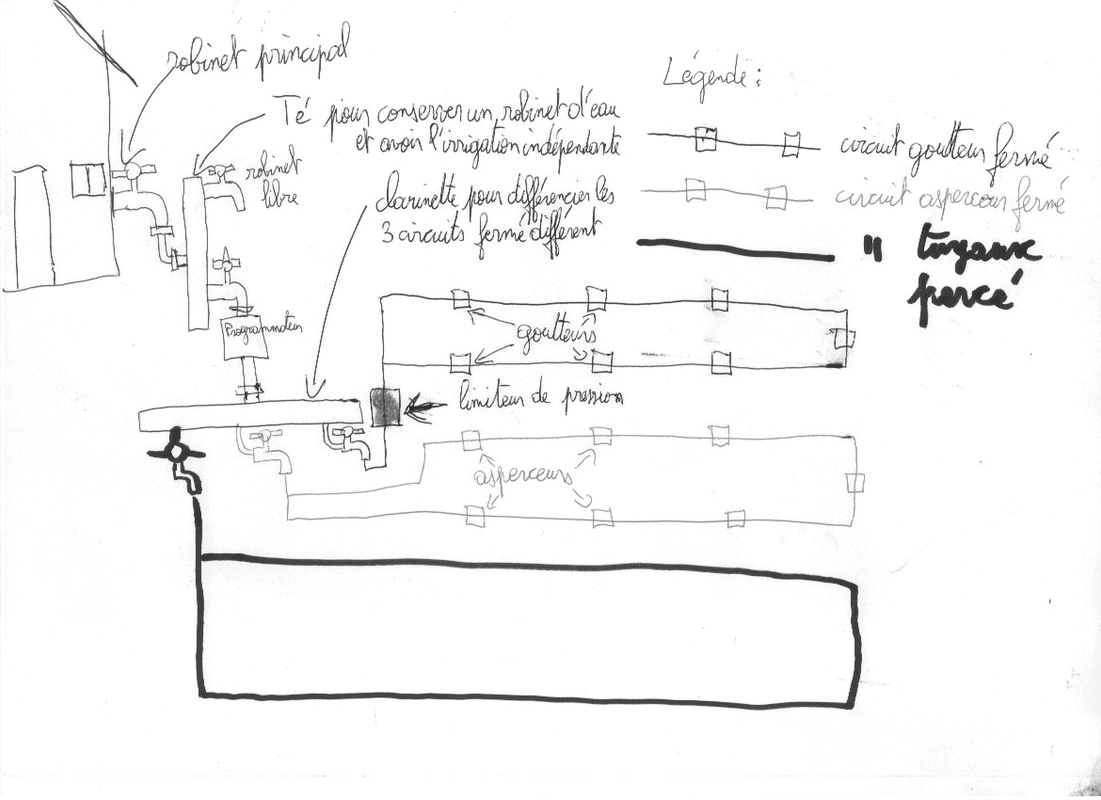 robinet principal
Légende :
Té pour conserver un robinet d'eau
et avoir l'irrigation indépendante
circuit goutteur fermé
robinet
libre
clarinette pour différencier les
3 circuits fermé différent
circuit asperceur fermé
" tuyaux
percé
Programmateur
goutteurs
limiteur de pression
asperceurs